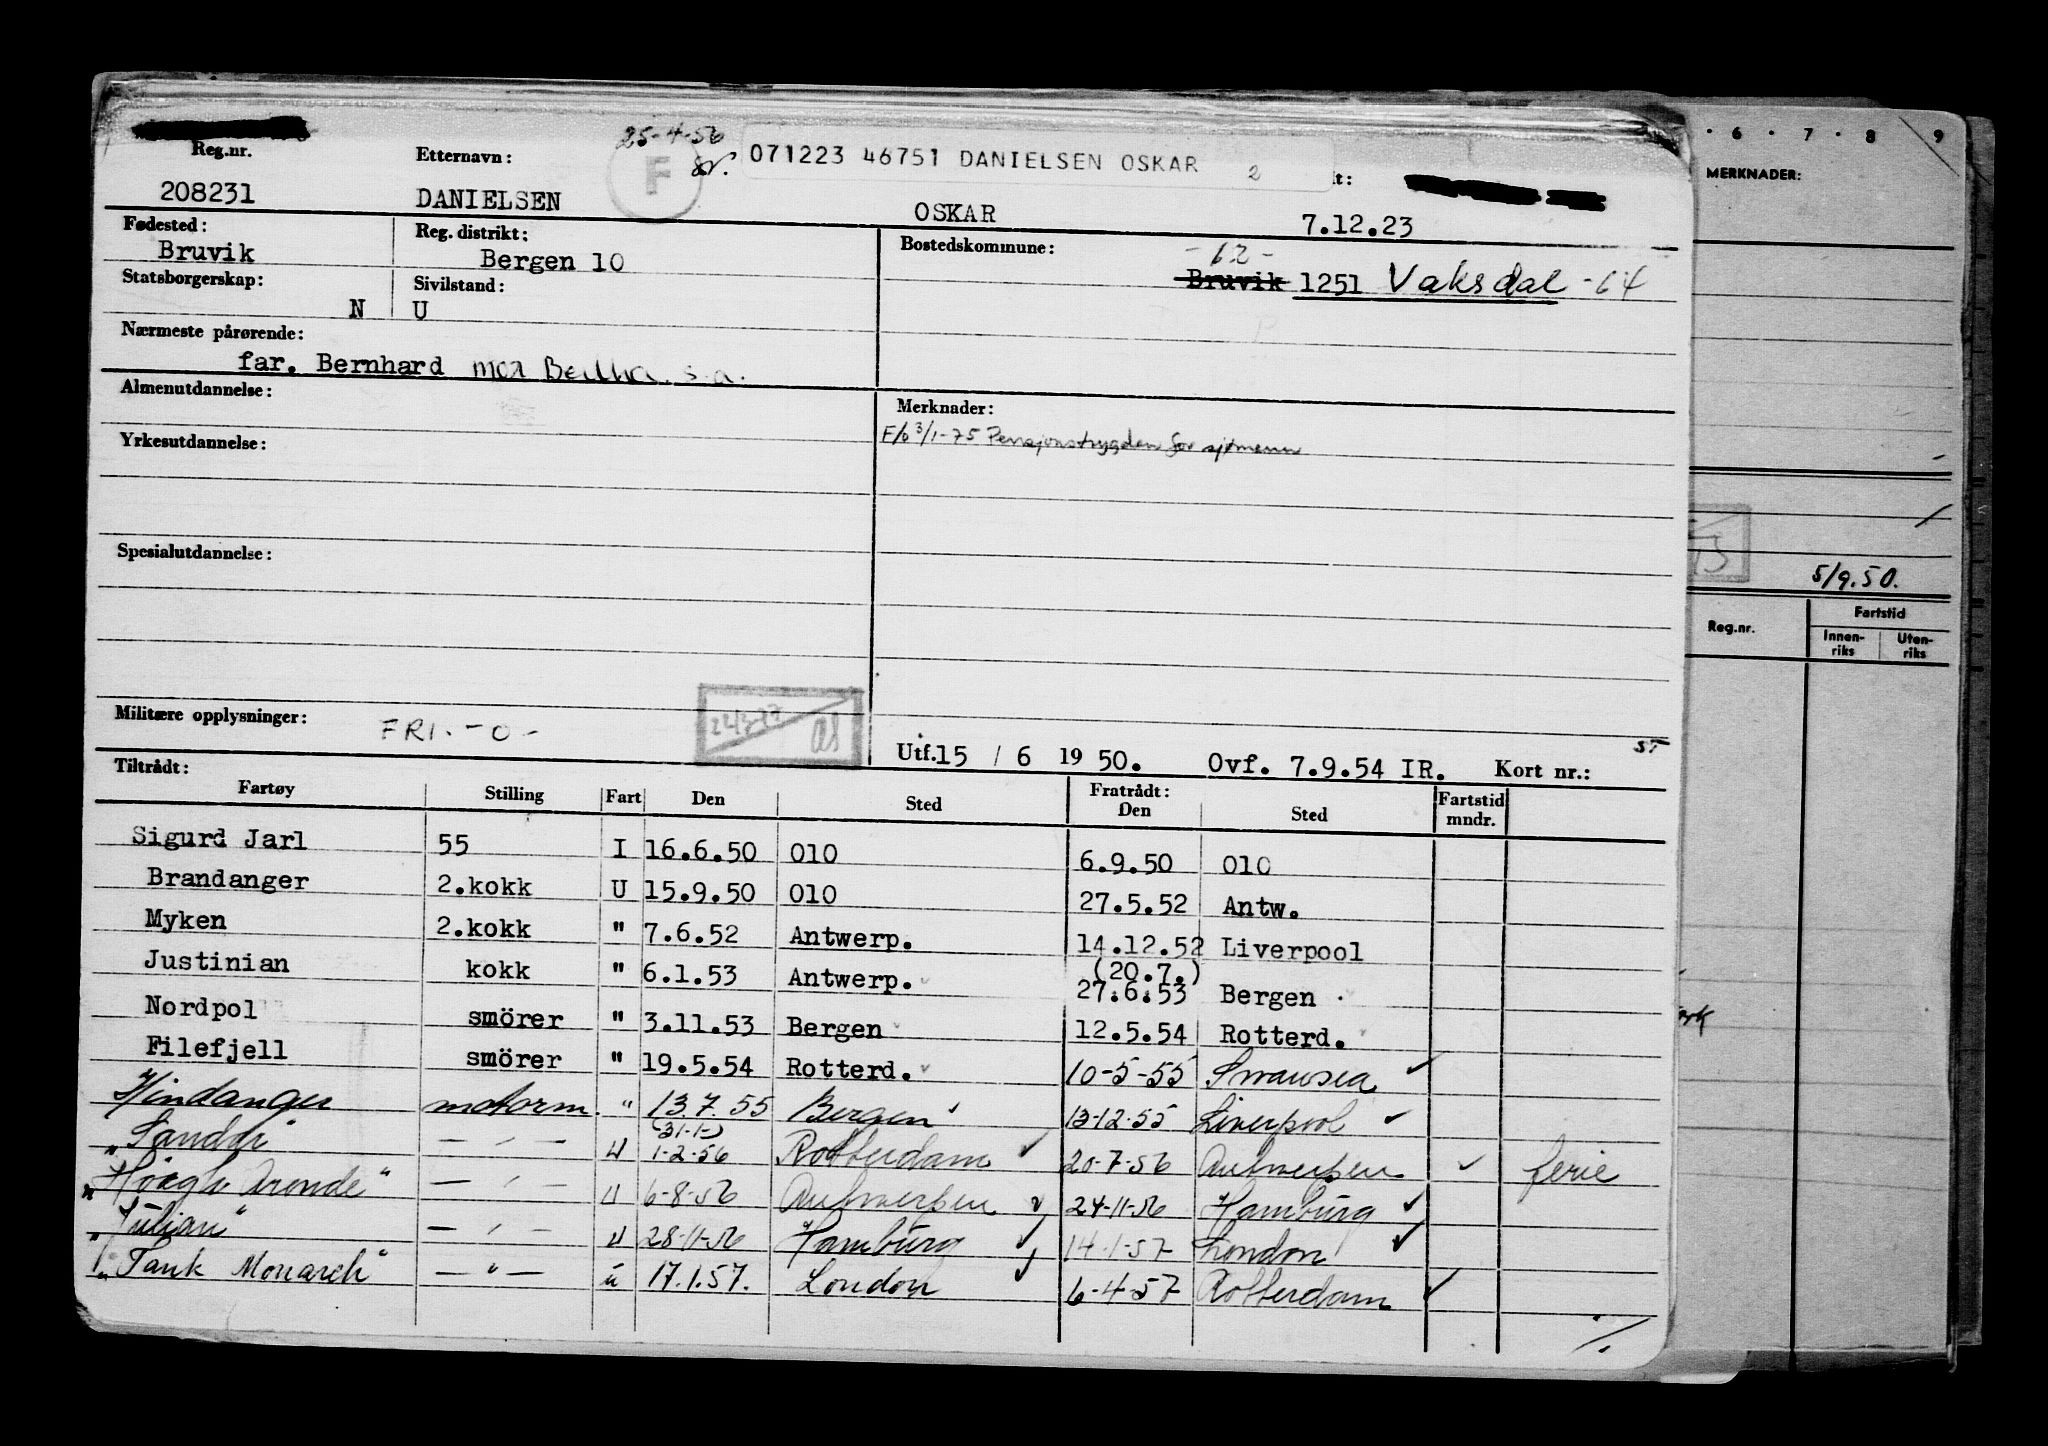 25-4-56
071223 46751 DANIELSEN OSKAR 2
F
Reg.nr. Etternavn: t:
208231 DANIELSEN OSKAR 7.12.23
Fødested: Reg. distrikt: Bostedskommune:
Bruvik Bergen 10 -62-
Bruvik 1251 Vaksdal -64
Statsborgerskap: Sivilstand:
N U
Nærmeste pårørende:
far. Bernhard mor Bertha s.a.
Almenutdannelse: Merknader:
F/o 3/1-75 Pensjonstrygden for sjømenn
Yrkesutdannelse:
Spesialutdannelse:
Militære opplysninger: FRI.-O-
Utf. 15 / 6 19 50. Ovf. 7.9.54 IR. Kort nr.:
Tiltrådt: Fratrådt:
Fartøy Stilling Fart Den Sted Den Sted Fartstid mndr.
Sigurd Jarl 55 I 16.6.50 010 6.9.50 010
Brandanger 2.kokk U 15.9.50 010 27.5.52 Antw.
Myken 2.kokk " 7.6.52 Antwerp. 14.12.52 Liverpool
Justinian kokk " 6.1.53 Antwerp. (20.7.) 27.6.53 Bergen
Nordpol smörer " 3.11.53 Bergen 12.5.54 Rotterd.
Filefjell smörer " 19.5.54 Rotterd. 10-5-55 Swansea
Hindanger motorm. " 13.7.55 Bergen 13-12-55 Liverpool
(31-1-)
"Sandar" — " — U 1-2-56 Rotterdam 20-7-56 Antwerpen ferie
"Höegh Aronde" — " — U 6-8-56 Antwerpen 24-11-56 Hamburg
"Julian" — " — U 28-11-56 Hamburg 14-1-57 London
"Tank Monarch" — " — u 17.1.57. London 6-4-57 Rotterdam
·/.
· 6 · 7 · 8 9
MERKNADER:
5/9.50.
Reg.nr. Fartstid
Innenriks Utenriks